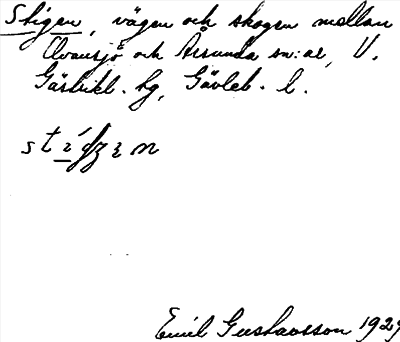 Stigen, vägen och skogen mellan
Ovansjö och Årsunda sn:ar, V.
Gästrikl. hg, Gävleb. l.
Emil Gustavsson 1929